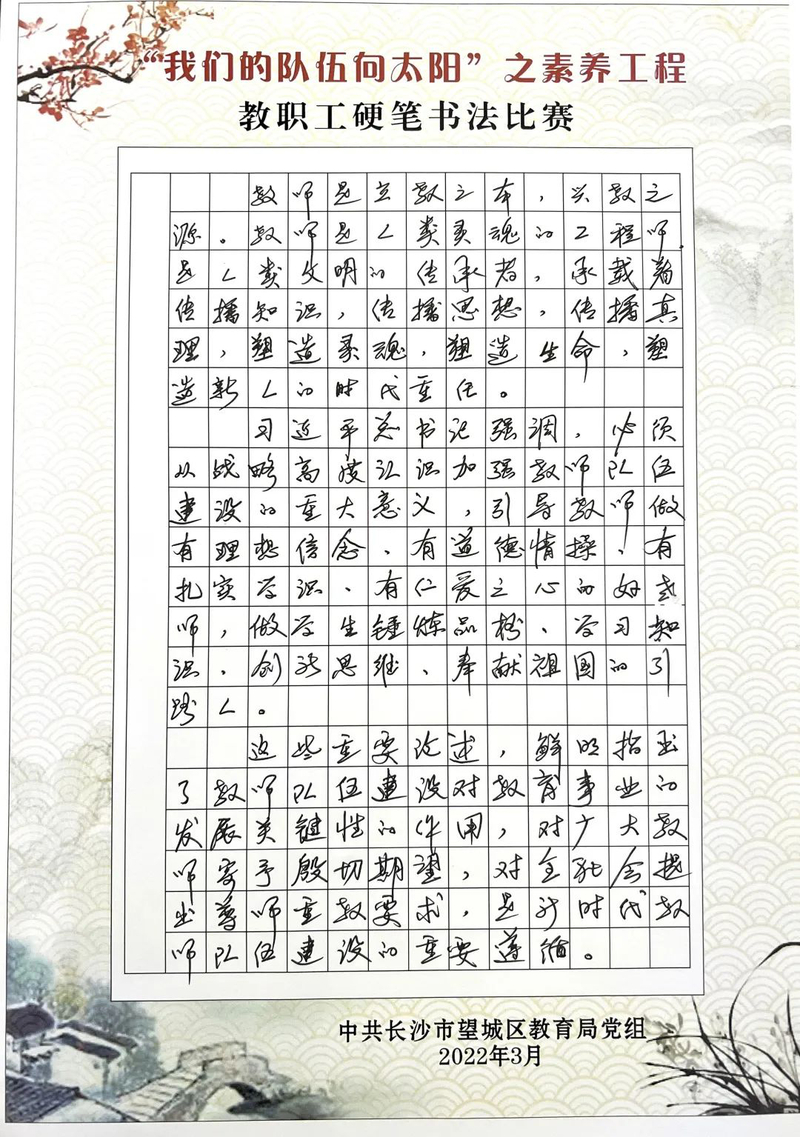 “我们的队伍向太阳”之素养工程
教职工硬笔书法比赛
教师是立教之本，兴教之
源。教师是人类灵魂的工程师，
是人类文明的传承者，承载着
传播知识，传播思想，传播真
理，塑造灵魂，塑造生命，塑
造新人的时代重任。
习近平总书记强调，必须
从战略高度认识加强教师队伍
建设的重大意义，引导教师做
有理想信念、有道德情操、有
扎实学识、有仁爱之心的好老
师，做学生锤炼品格、学习知
识、创新思维、奉献祖国的引
路人。
这些重要论述，鲜明指出
了教师队伍建设对教育事业的
发展关键性的作用，对广大教
师寄予殷切期望，对全社会提
出尊师重教要求，是新时代教
师队伍建设的重要遵循。
中共长沙市望城区教育局党组
2022年3月